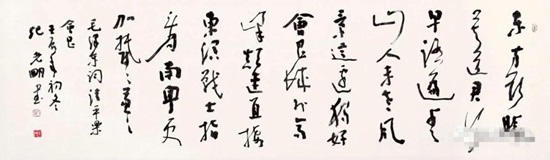 东方欲晓
莫道君行
早踏遍青
山人未老风
景这边独好
会昌城外高
峰颠连直接
东溟战士指
看南粤更
加郁郁葱葱
毛泽东词清平乐
会昌
壬辰年初冬
纪光明书